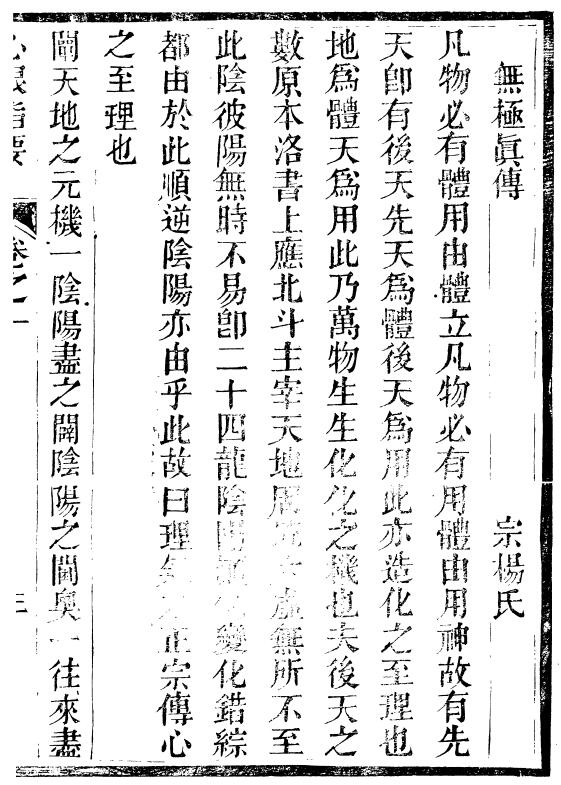 無極眞傳　宗楊氏
凡物必有體用由體立凡物必有用體由用神故有先
天卽有後天先天爲體後天爲用此亦造化之至理也
地爲體天爲用此乃萬物生生化化之機也夫後天之
數原本洛書上應北斗主宰天地周虛無所不至
此陰彼陽無時不易卽二十四龍陰陽變化錯綜
都由於此順逆陰陽亦由乎此故曰理氣正宗傳心
之至理也
闡天地之元機一陰陽盡之闢陰陽之閫奧一往來盡
心眼指要　卷之一　三